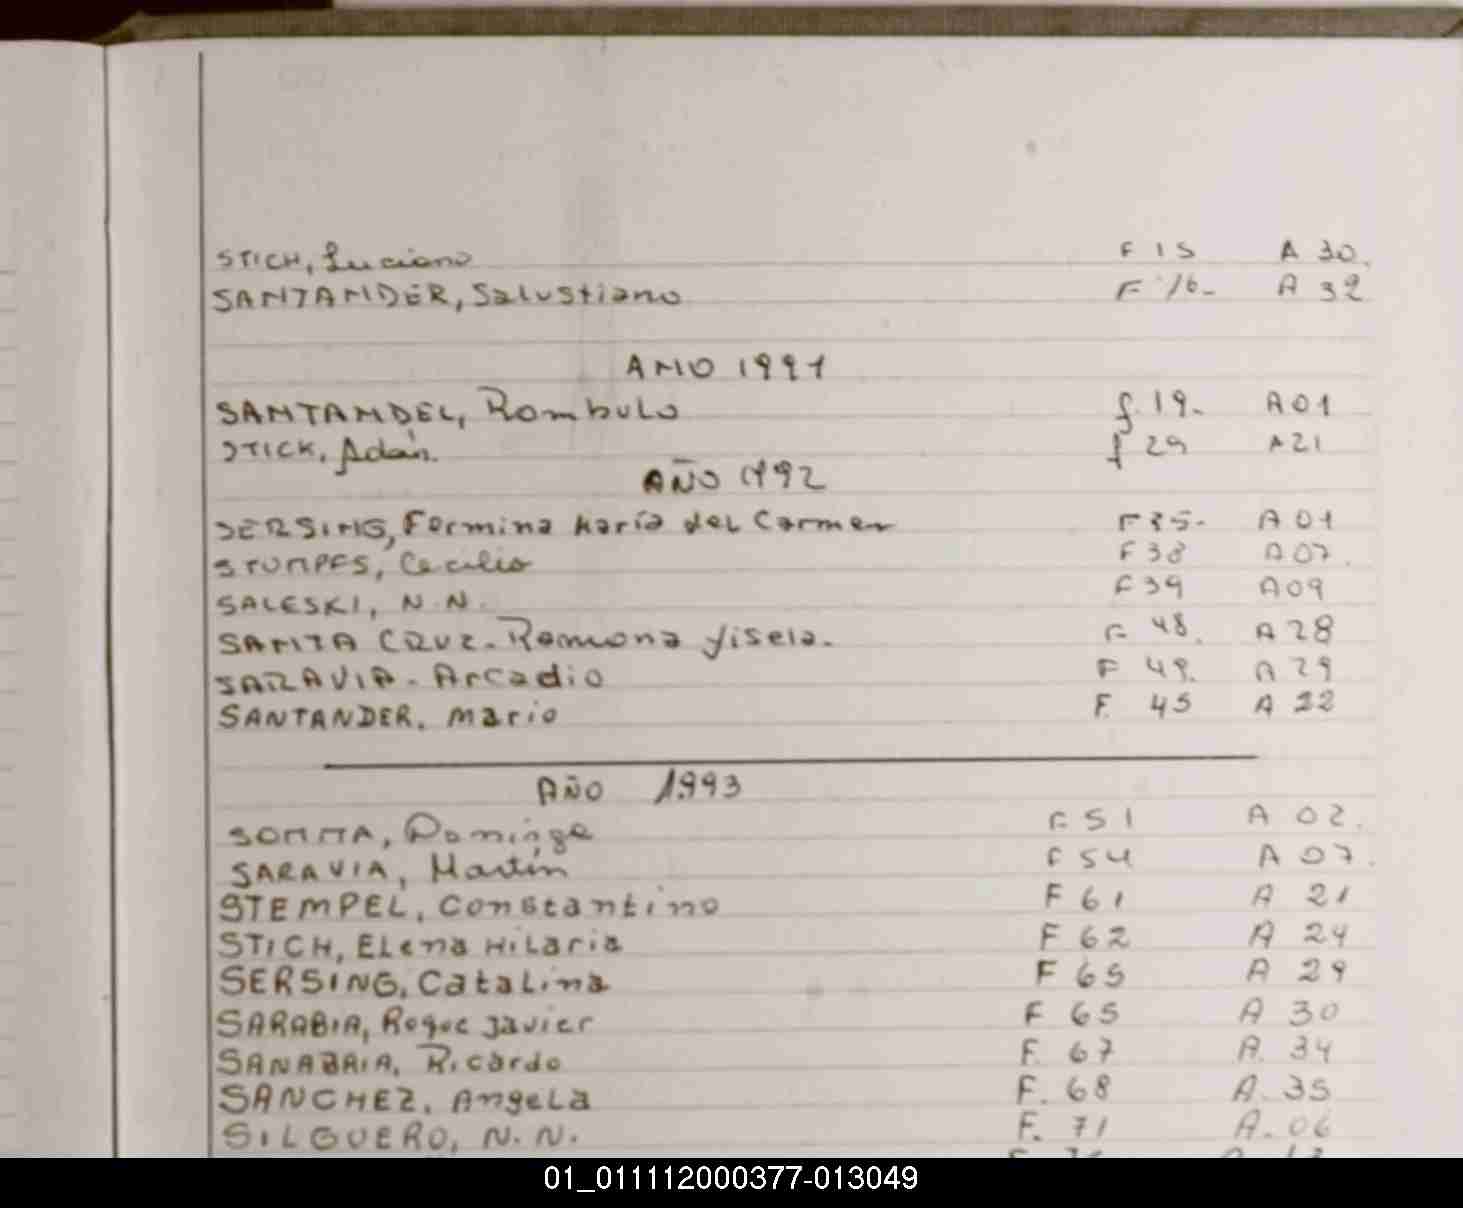 STICH, Luciano F 15 A 30.
SANTANDER, Salustiano F 16- A 32
AÑO 1991
SANTANDEL, Rombulo f. 19- A01
STICK, Adán. f 29 A21
AÑO 1992
SERSING, Fermina María del Carmen F35- A01
STUMPFS, Cecilio F38 A07.
SALESKI, N.N. F39 A09
SANTA CRUZ- Ramona Yisela. F 48. A28
SARAVIA- Arcadio F 49. A29
SANTANDER. Mario F. 45 A 22
AÑO 1993
SOMMA, Dominga F51 A 02.
SARAVIA, Martín F54 A 07.
STEMPEL, Constantino F 61 A 21
STICH, ELena HiLaria F 62 A 24
SERSING, CataLina F 65 A 29
SARABIA, Roque Javier F 65 A 30
SANABRIA, Ricardo F. 67 A. 34
SANCHEZ. AngeLa F. 68 A. 35
SILGUERO, N.N. F. 71 A. 06
01_011112000377-013049